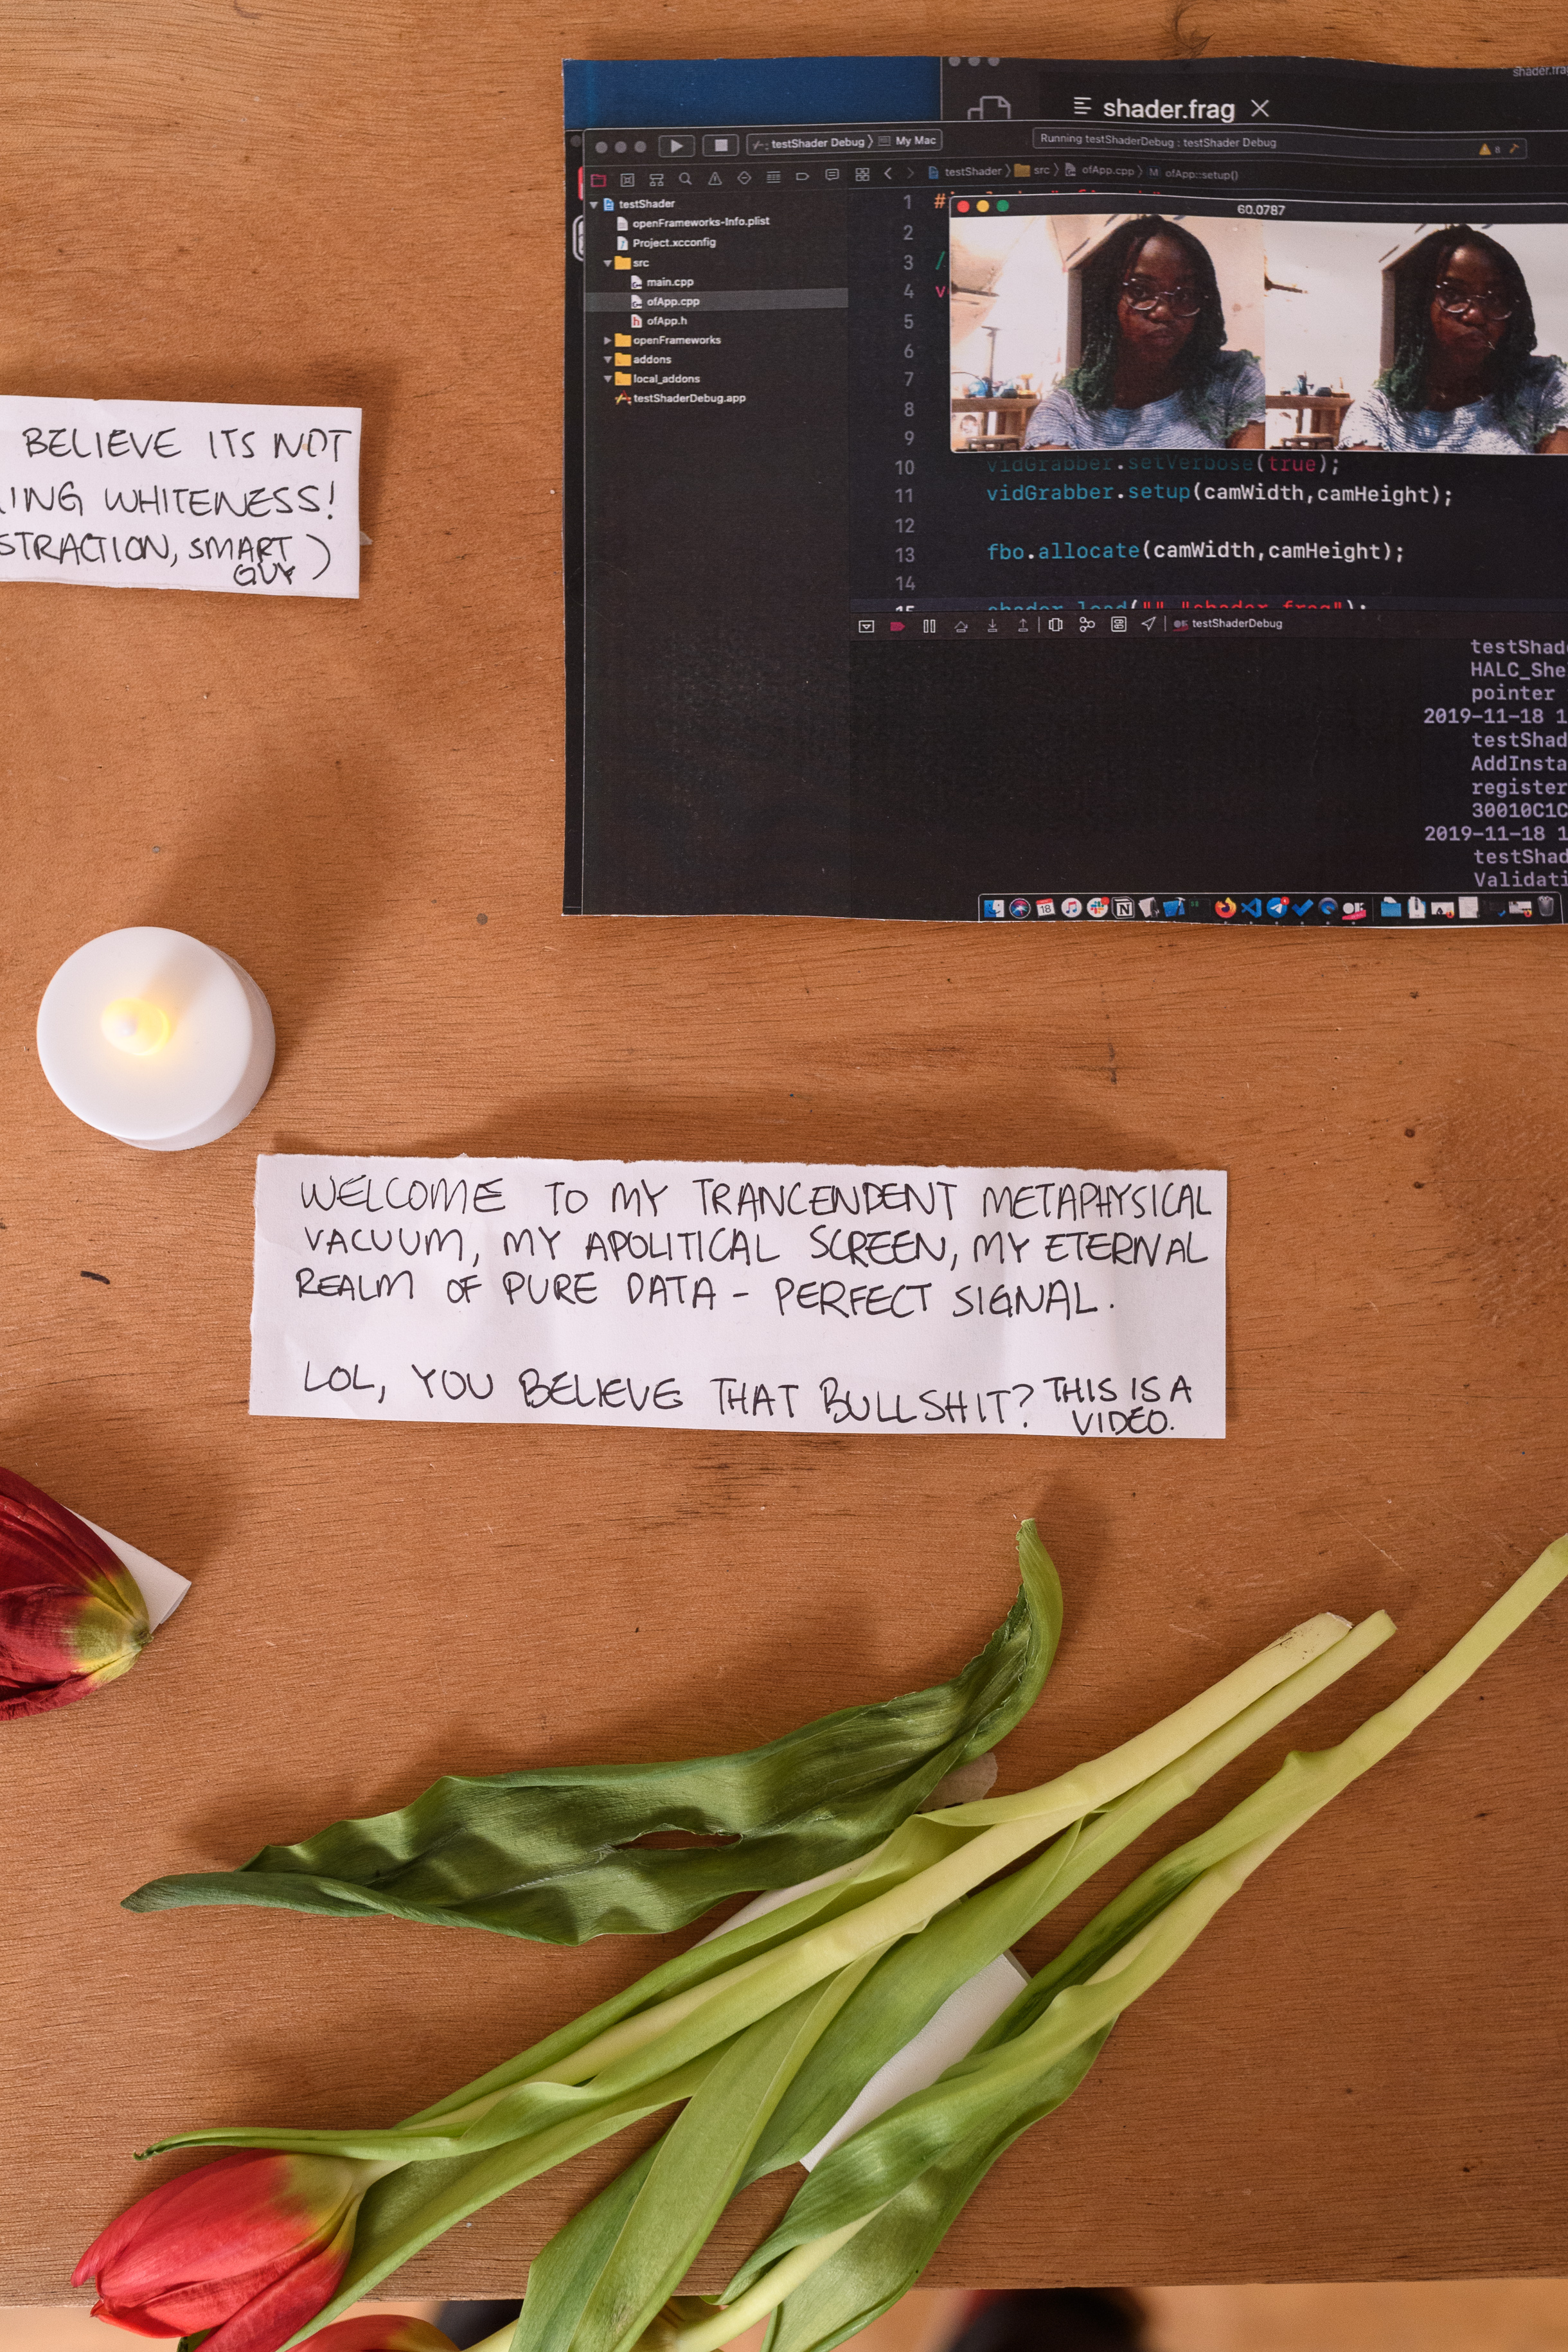 shader.frag
testShader Debug My Mac
Running testShaderDebug : testShader Debug
8
testShader src ofApp.cpp M ofApp::setup()
testShader
openFrameworks-Info.plist
Project.xcconfig
src
main.cpp
ofApp.cpp
ofApp.h
openFrameworks
addons
local_addons
testShaderDebug.app
60.0787
1 #
2
3 /
4 v
5
6
7
8
9
10 vidGrabber.setVerbose(true);
11 vidGrabber.setup(camWidth,camHeight);
12
13 fbo.allocate(camWidth,camHeight);
14
15 shader.load("","shader.frag");
testShaderDebug
testShad
HALC_She
pointer
2019-11-18 1
testShad
AddInsta
register
30010C1C
2019-11-18 1
testShad
Validati
18
BELIEVE ITS NOT
ING WHITENESS!
STRACTION, SMART
GUY)
WELCOME TO MY TRANCENDENT METAPHYSICAL
VACUUM, MY APOLITICAL SCREEN, MY ETERNAL
REALM OF PURE DATA - PERFECT SIGNAL.
LOL, YOU BELIEVE THAT BULLSHIT? THIS IS A
VIDEO.